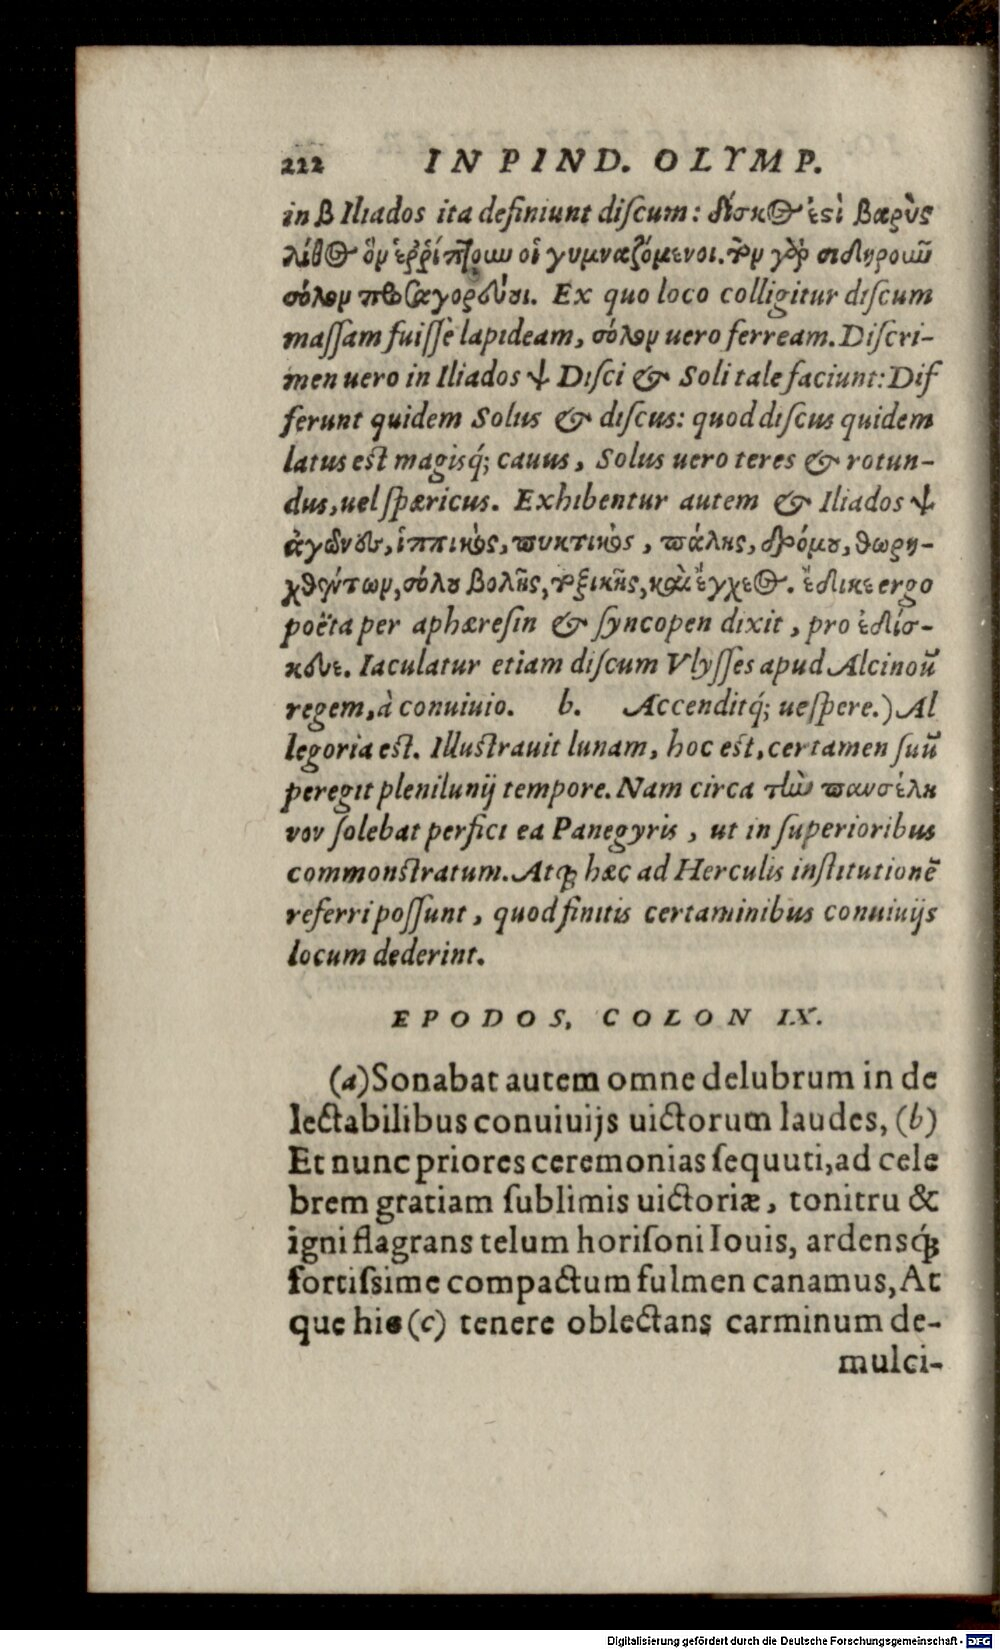 222 IN PIND. OLYMP.
in β Iliados ita definiunt diſcum: δίσκος ἐστὶ βαρὺς
λίθος ὃν ἐῤῥίπτουν οἱ γυμναζόμενοι. τὸν γὰρ σιδηροῦν
σόλον προσαγορεύουσι. Ex quo loco colligitur diſcum
maſſam fuiſſe lapideam, σόλον uero ferream. Diſcri-
men uero in Iliados ψ Diſci & Soli tale faciunt: Dif
ferunt quidem Solus & diſcus: quod diſcus quidem
latus eſt magisq́; cauus, Solus uero teres & rotun-
dus, uel ſpæricus. Exhibentur autem & Iliados ψ
ἀγῶνες, ἱππικὸς, πυκτικὸς, πάλης, δρόμου, θωρη-
χθέντων, σόλου βολῆς, τοξικῆς, καὶ ἔγχεος. ἔδικε ergo
poëta per aphæreſin & ſyncopen dixit, pro ἐδίσ-
κευε. Iaculatur etiam diſcum Vlyſſes apud Alcinoũ
regem, à conuiuio. b. Accenditq́; ueſpere.) Al
legoria eſt. Illuſtrauit lunam, hoc eſt, certamen ſuũ
peregit plenilunij tempore. Nam circa τὴν πανσέλη
νον ſolebat perfici ea Panegyris, ut in ſuperioribus
commonſtratum. Atq; hæc ad Herculis inſtitutionẽ
referri poſſunt, quod finitis certaminibus conuiuijs
locum dederint.
EPODOS, COLON IX.
(a) Sonabat autem omne delubrum in de
lectabilibus conuiuijs uictorum laudes, (b)
Et nunc priores ceremonias ſequuti, ad cele
brem gratiam ſublimis uictoriæ, tonitru &
igni flagrans telum horiſoni Iouis, ardensq́;
fortiſsime compactum fulmen canamus, At
que his (c) tenere oblectans carminum de-
mulci-
Digitalisierung gefördert durch die Deutsche Forschungsgemeinschaft - DFG